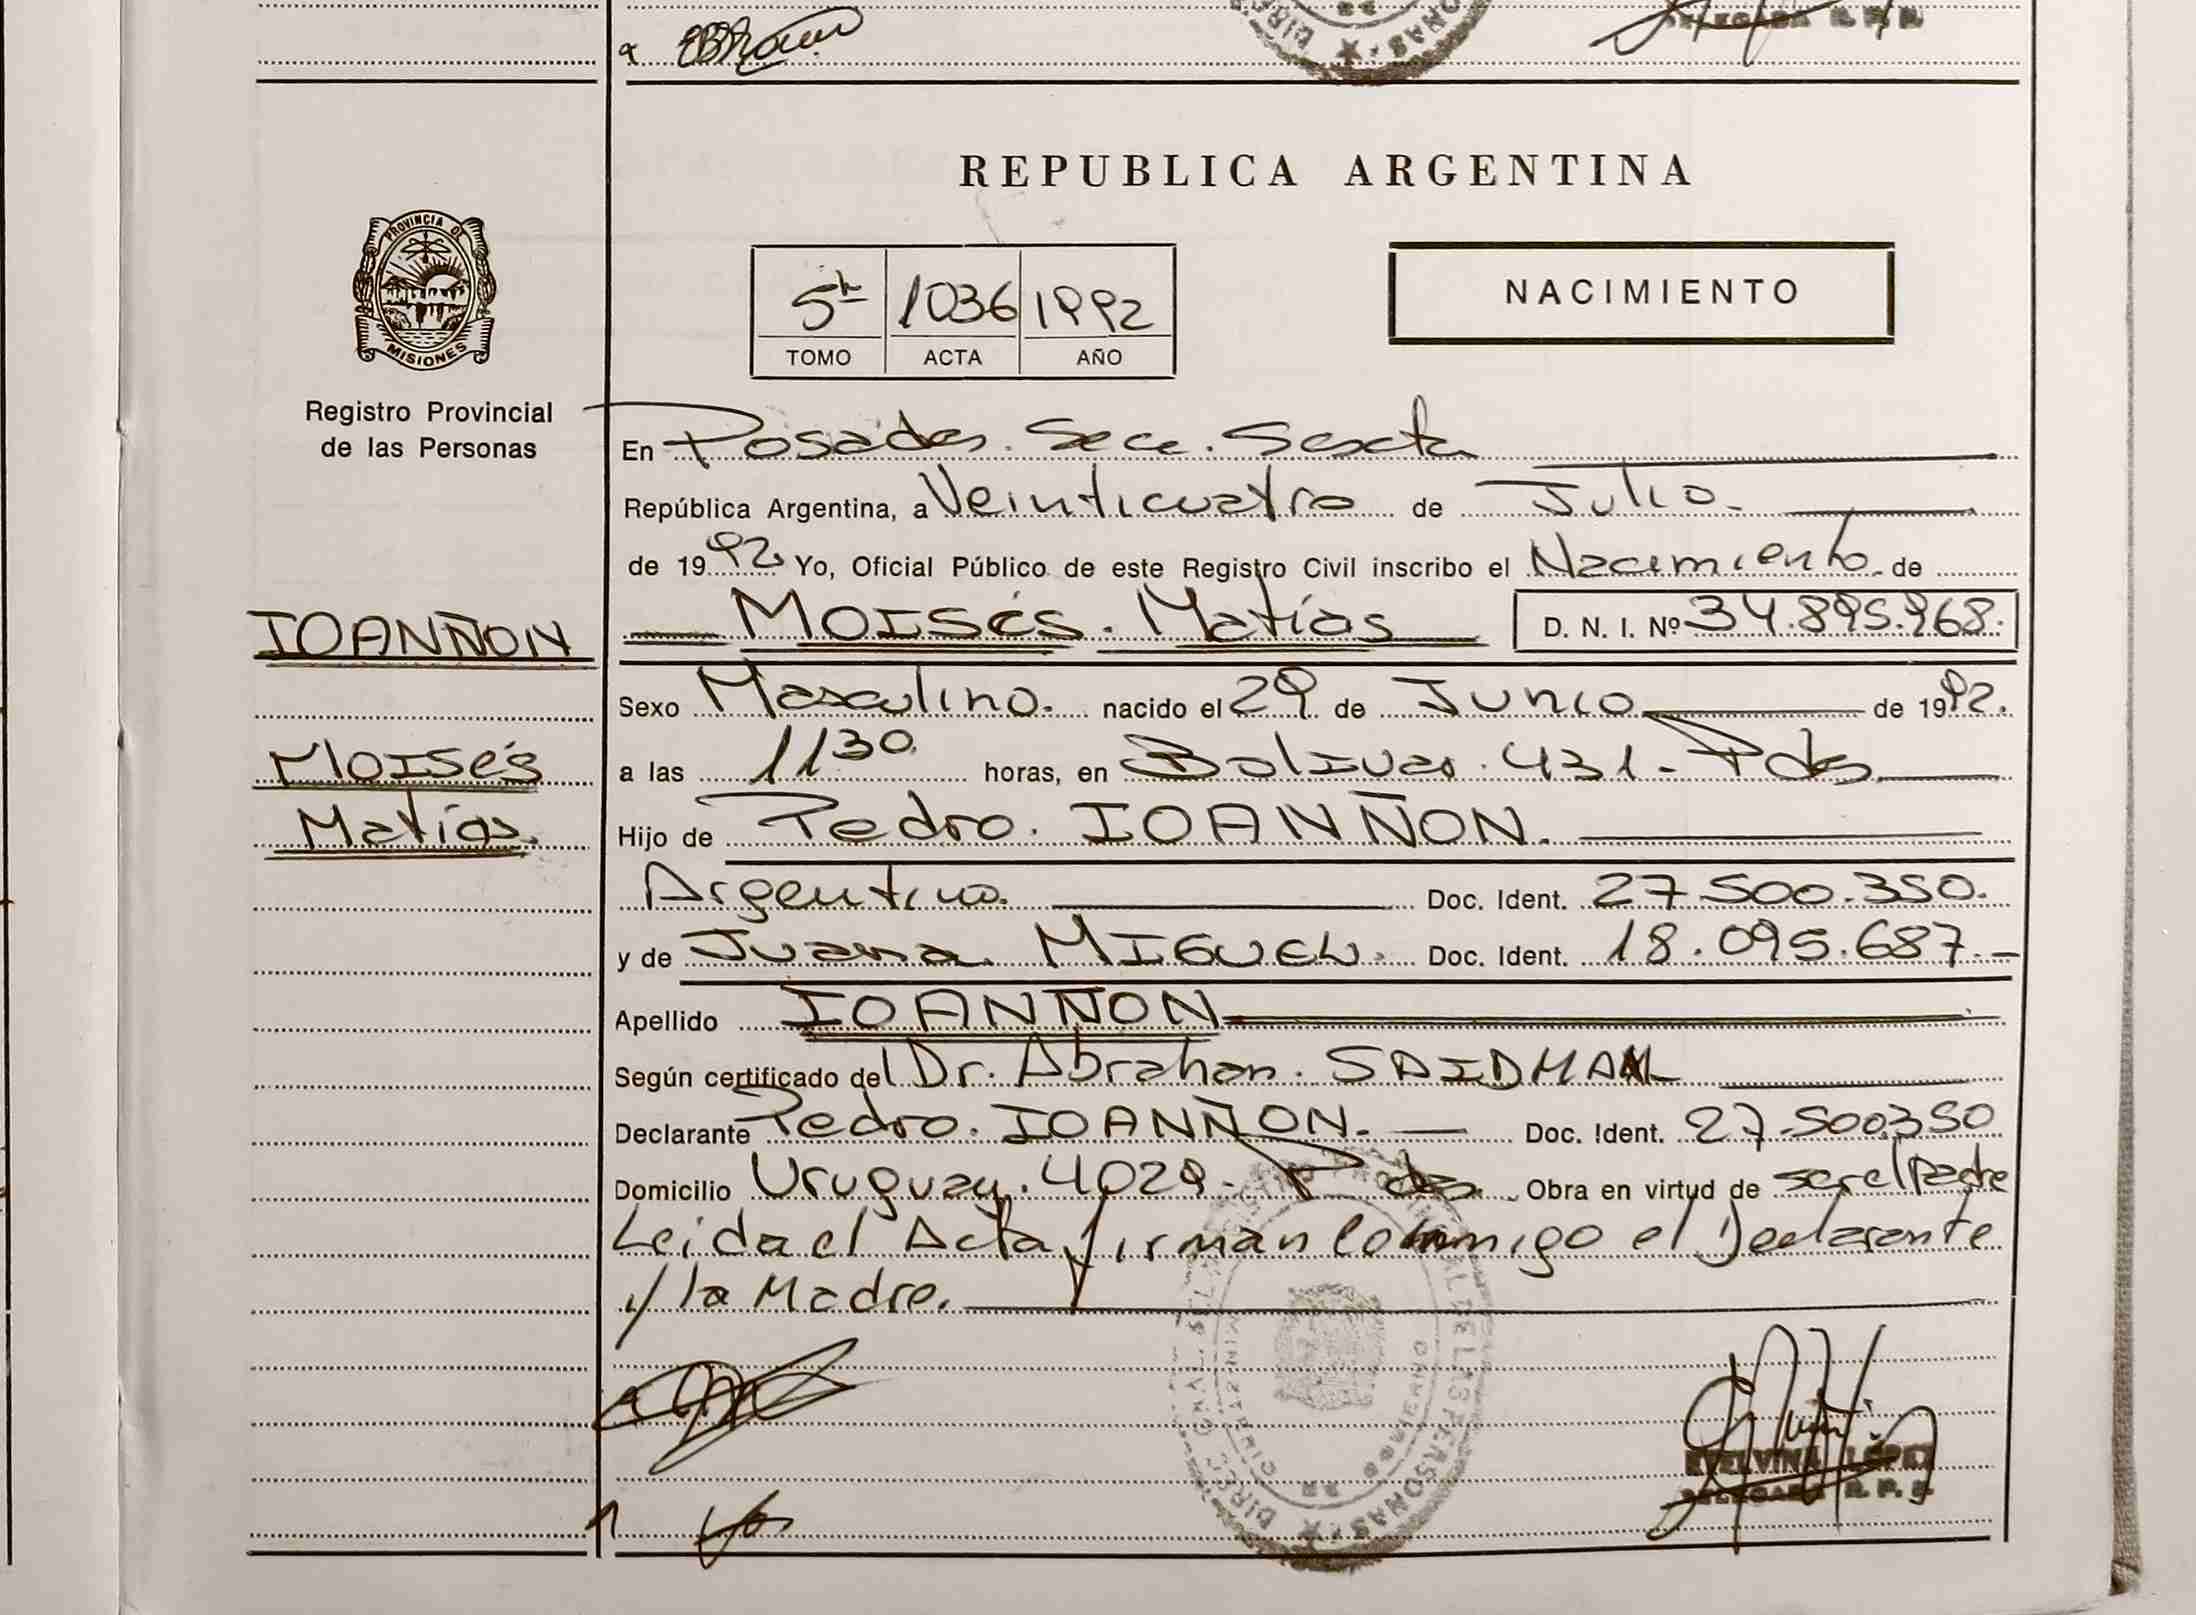 a
DELEGADA R. P. P.
REPUBLICA ARGENTINA
PROVINCIA DE MISIONES
Registro Provincial
de las Personas
5to 1036 1992
TOMO ACTA AÑO
NACIMIENTO
En Posadas. Secc. Sexta
República Argentina, a Veinticuatro de Julio.
de 1992 Yo, Oficial Público de este Registro Civil inscribo el Nacimiento de
IOANÑON
Moisés. Matías D. N. I. Nº 34.895.968.
Sexo Masculino. nacido el 29 de Junio de 1992.
Moisés
a las 11 30 horas, en Bolivar. 431 - Pdas.
Matías.
Hijo de Pedro. IOANÑON.
Argentino. Doc. Ident. 27.500.350.
y de Juana MIGUEL. Doc. Ident. 18.095.687.-
Apellido IOANÑON
Según certificado del Dr. Abrahan. SAIDMAN
Declarante Pedro. IOANÑON. Doc. Ident. 27.500.350
Domicilio Uruguay. 4029 - Pdas. Obra en virtud de ser el Padre
Leida el Acta firman conmigo el Declarante
y la Madre.
LÓPEZ
DELEGADA R. P. P.